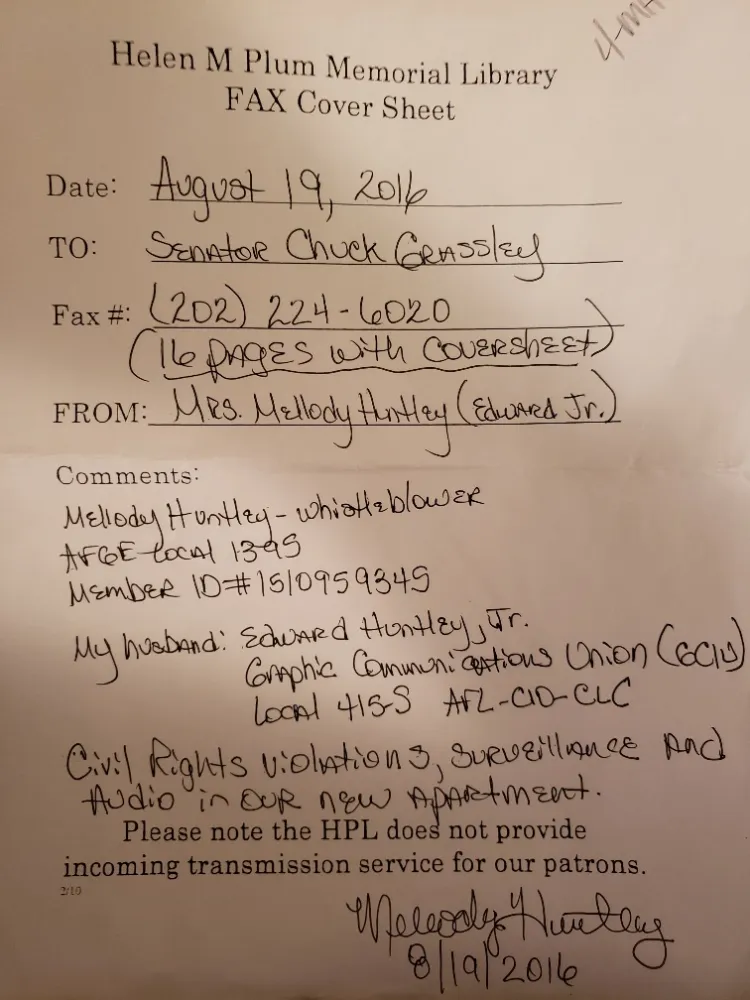 Helen M Plum Memorial Library
FAX Cover Sheet
Date: August 19, 2016
TO: Senator Chuck Grassley
Fax #: (202) 224-6020
(16 pages with coversheet)
FROM: Mrs. Mellody Huntley (Edward Jr.)
Comments:
Mellody Huntley - whistleblower
AFGE-Local 1395
Member ID# 1510959345
My husband: Edward Huntley, Jr.
Graphic Communications Union (GCIU)
Local 415-S AFL-CIO-CLC
Civil Rights violations, surveillance and
Audio in our new apartment.
Please note the HPL does not provide
incoming transmission service for our patrons.
2/10
Mellody Huntley
8/19/2016